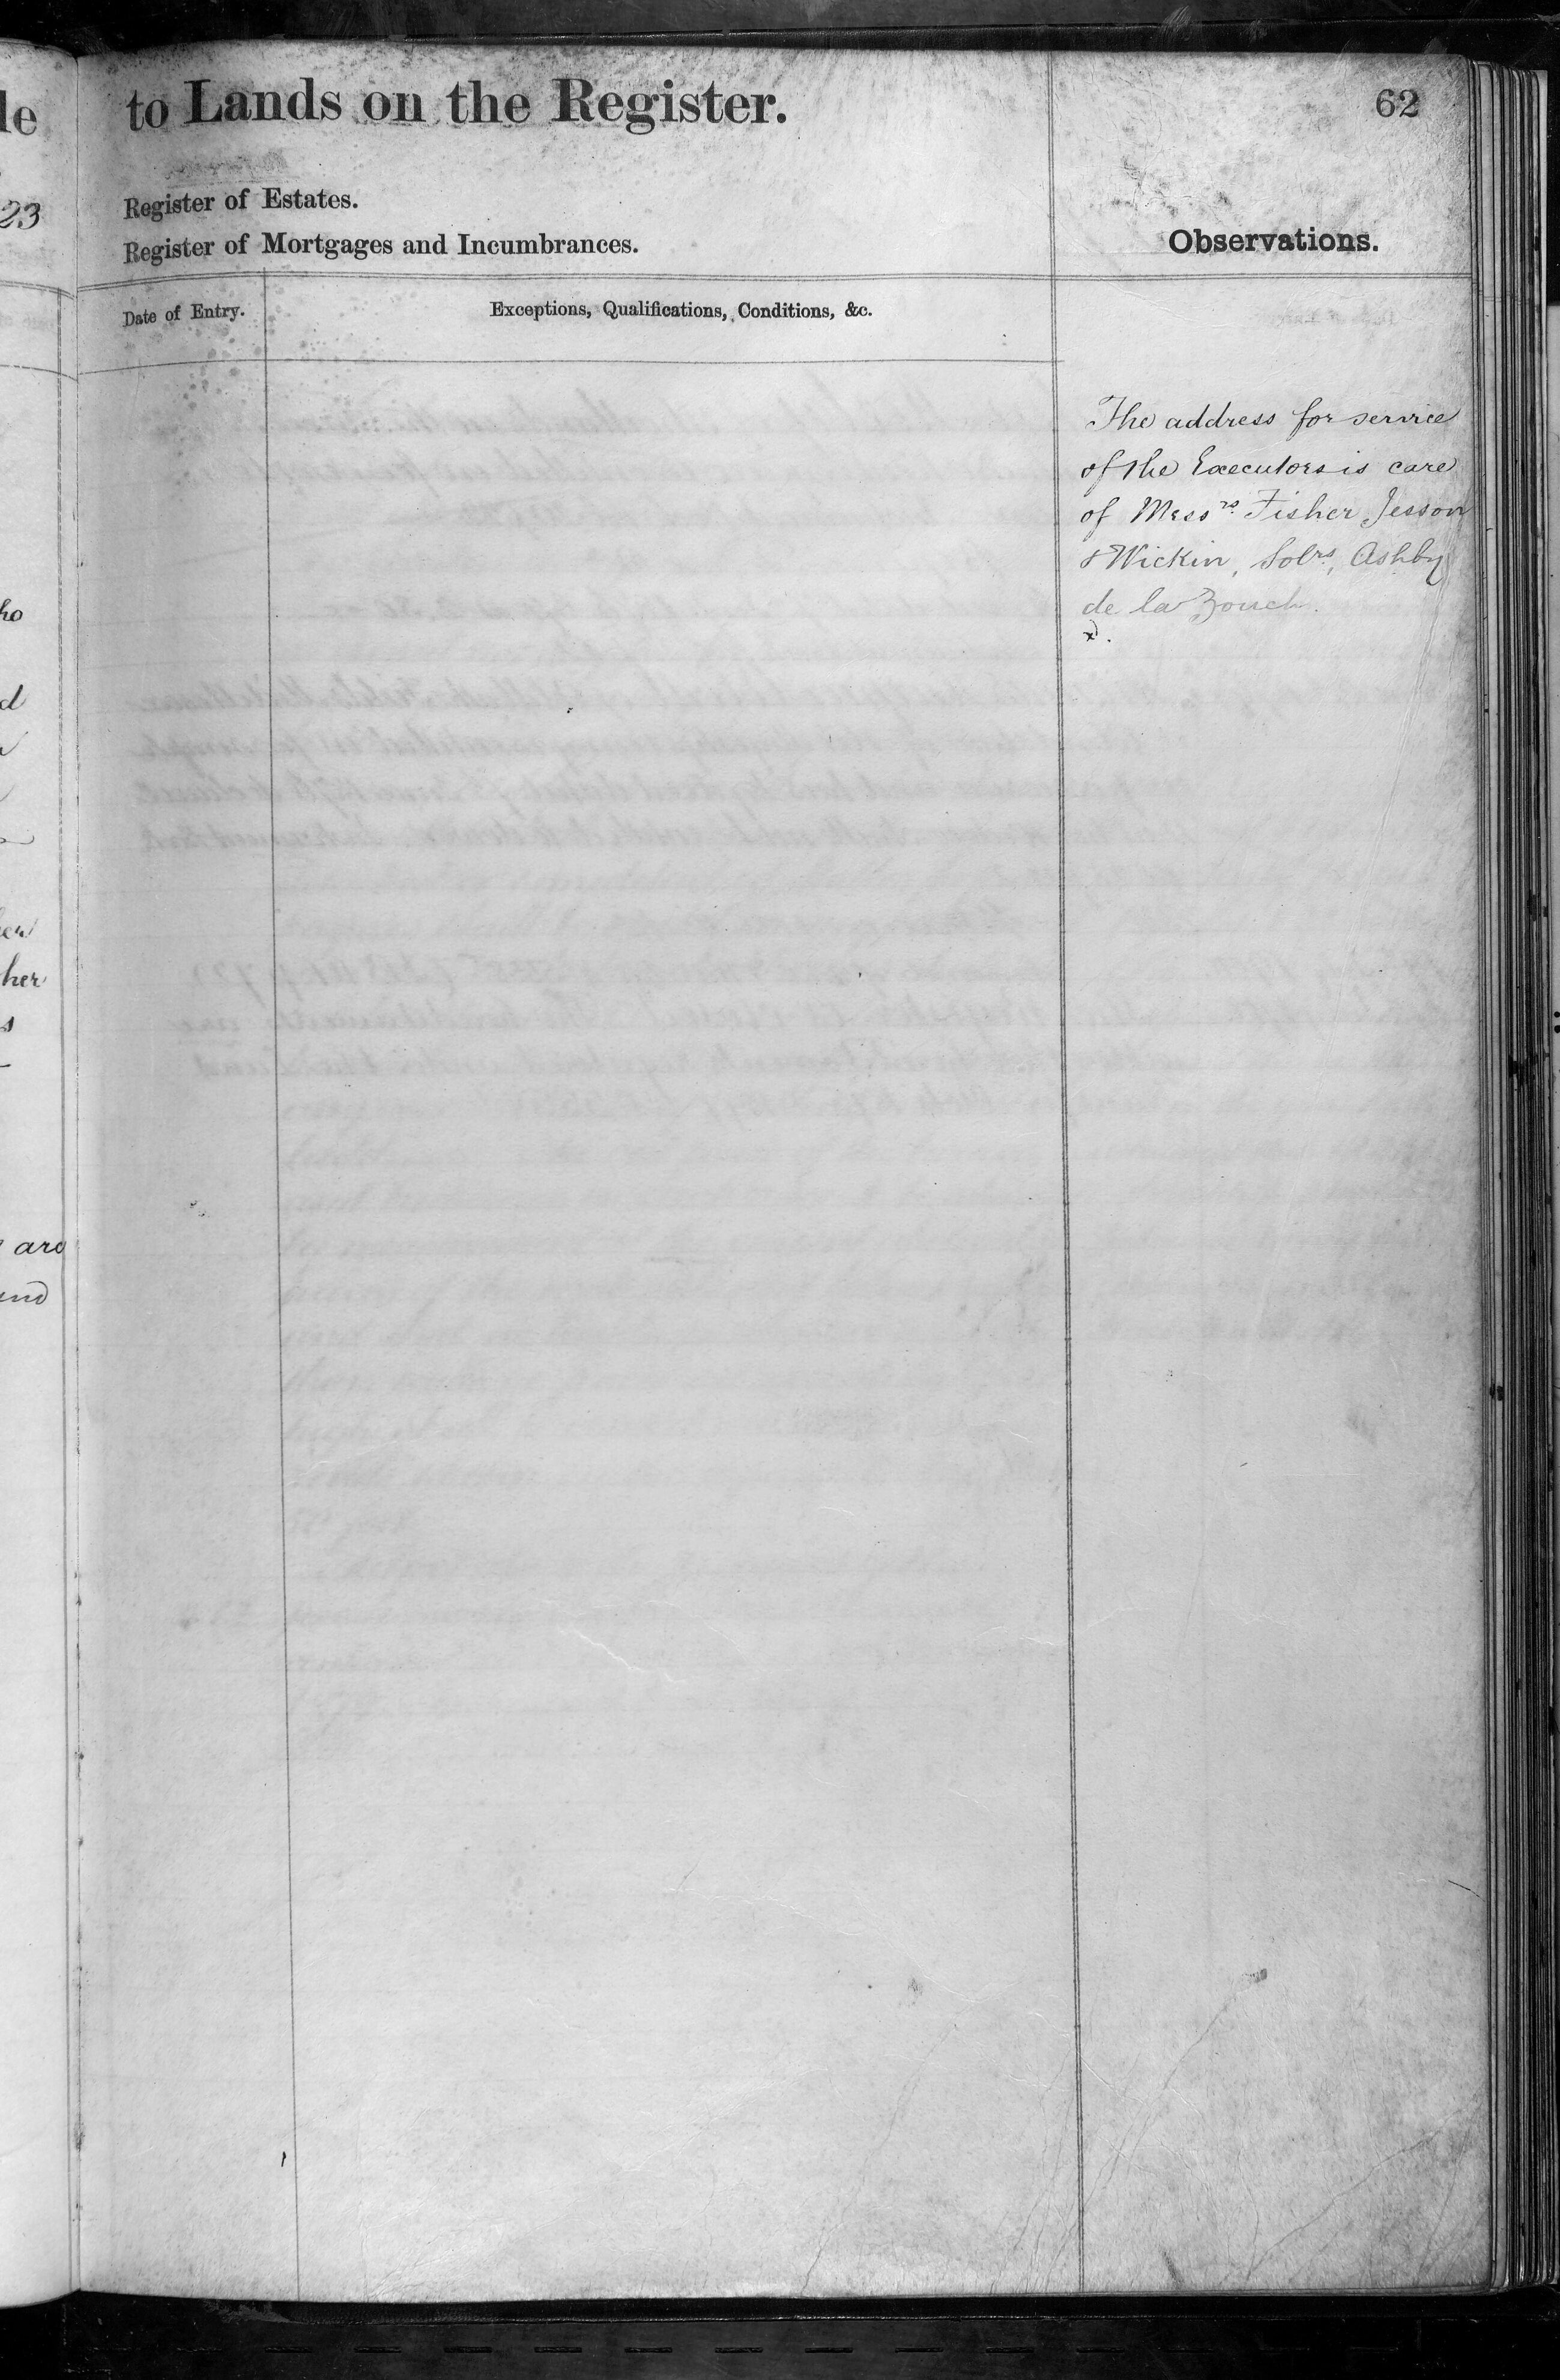 le
to Lands on the Register.
62
23
Register of Estates.
Register of Mortgages and Incumbrances.
Observations.
Date of Entry.
Exceptions, Qualifications, Conditions, &c.
The address for service
of the Executors is care
of Messrs. Fisher, Jesson
& Wickin, Solrs, Ashby
de la Zouch.
ho
d
her
s
are
and